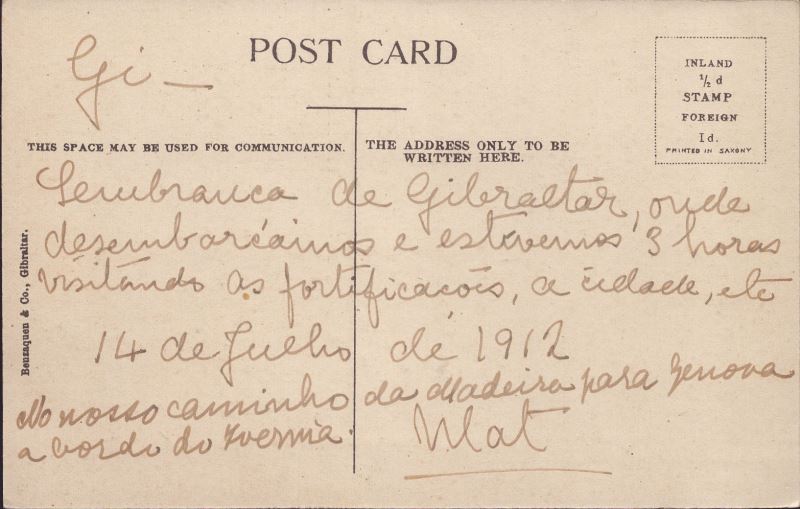 POST CARD
Gi —
INLAND
½ d
STAMP
FOREIGN
1d.
PRINTED IN SAXONY
THIS SPACE MAY BE USED FOR COMMUNICATION.
THE ADDRESS ONLY TO BE
WRITTEN HERE.
Benzaquen & Co., Gibraltar.
Lembranca de Gibraltar, onde
desembarcámos e estivemos 3 horas
visitando as fortificacois, a cidade, etc
14 de Julho de 1912
No nosso caminho da Madeira para Genova
a bordo do Ivernia.
Mat